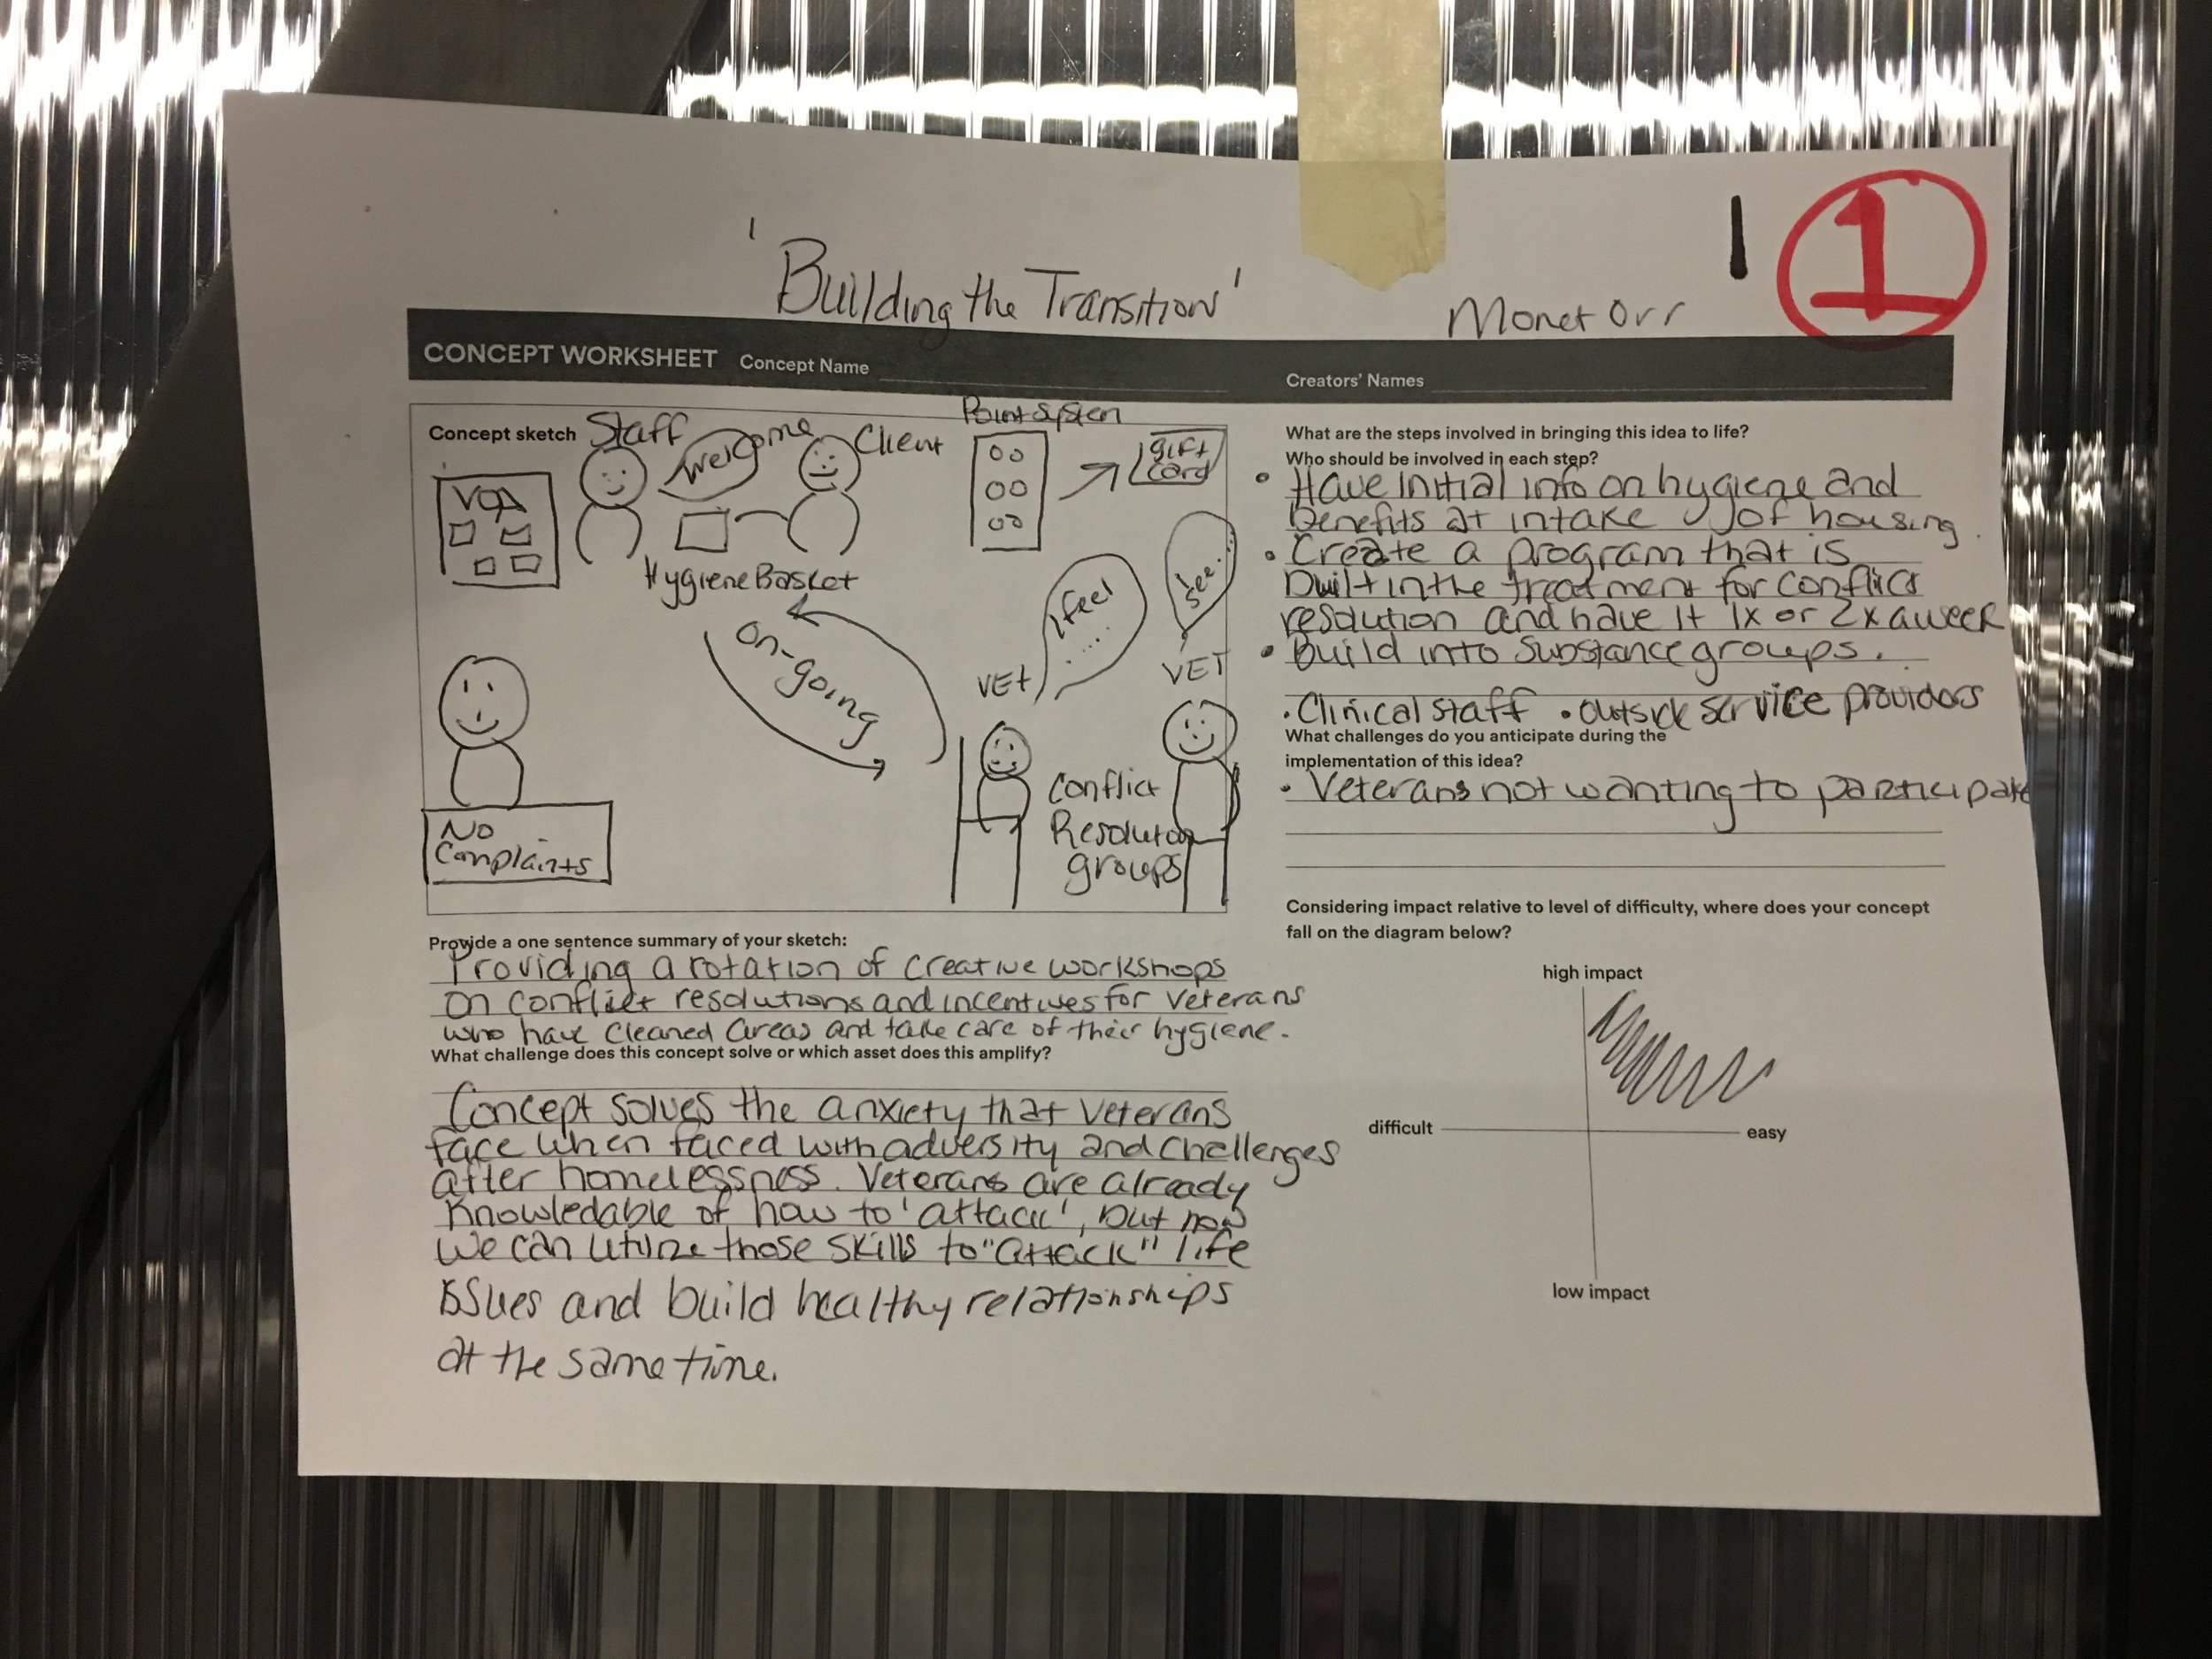 'Building the Transition'
Monet Orr
1
1
CONCEPT WORKSHEET Concept Name
Creators' Names
Concept sketch
Staff
Welcome
Client
VOA
Hygiene Basket
Point System
gift
card
on-going
I feel
.....
I
see...
VET
VET
Conflict
Resolution
groups
No
Complaints
Provide a one sentence summary of your sketch:
Providing a rotation of creative workshops
on conflict resolutions and incentives for veterans
who have cleaned areas and take care of their hygiene.
What challenge does this concept solve or which asset does this amplify?
Concept solves the anxiety that veterans
face when faced with adversity and challenges
after homelessness. Veterans are already
knowledable of how to 'attack', but now
we can utilize those skills to "attack" life
issues and build healthy relationships
at the same time.
What are the steps involved in bringing this idea to life?
Who should be involved in each step?
• Have initial info on hygiene and
benefits at intake of housing.
• Create a program that is
built in the treatment for conflict
resolution and have it 1x or 2x a week
• Build into Substance groups.
• Clinical staff • outside service providers
What challenges do you anticipate during the
implementation of this idea?
• Veterans not wanting to participate
Considering impact relative to level of difficulty, where does your concept
fall on the diagram below?
high impact
difficult
easy
low impact